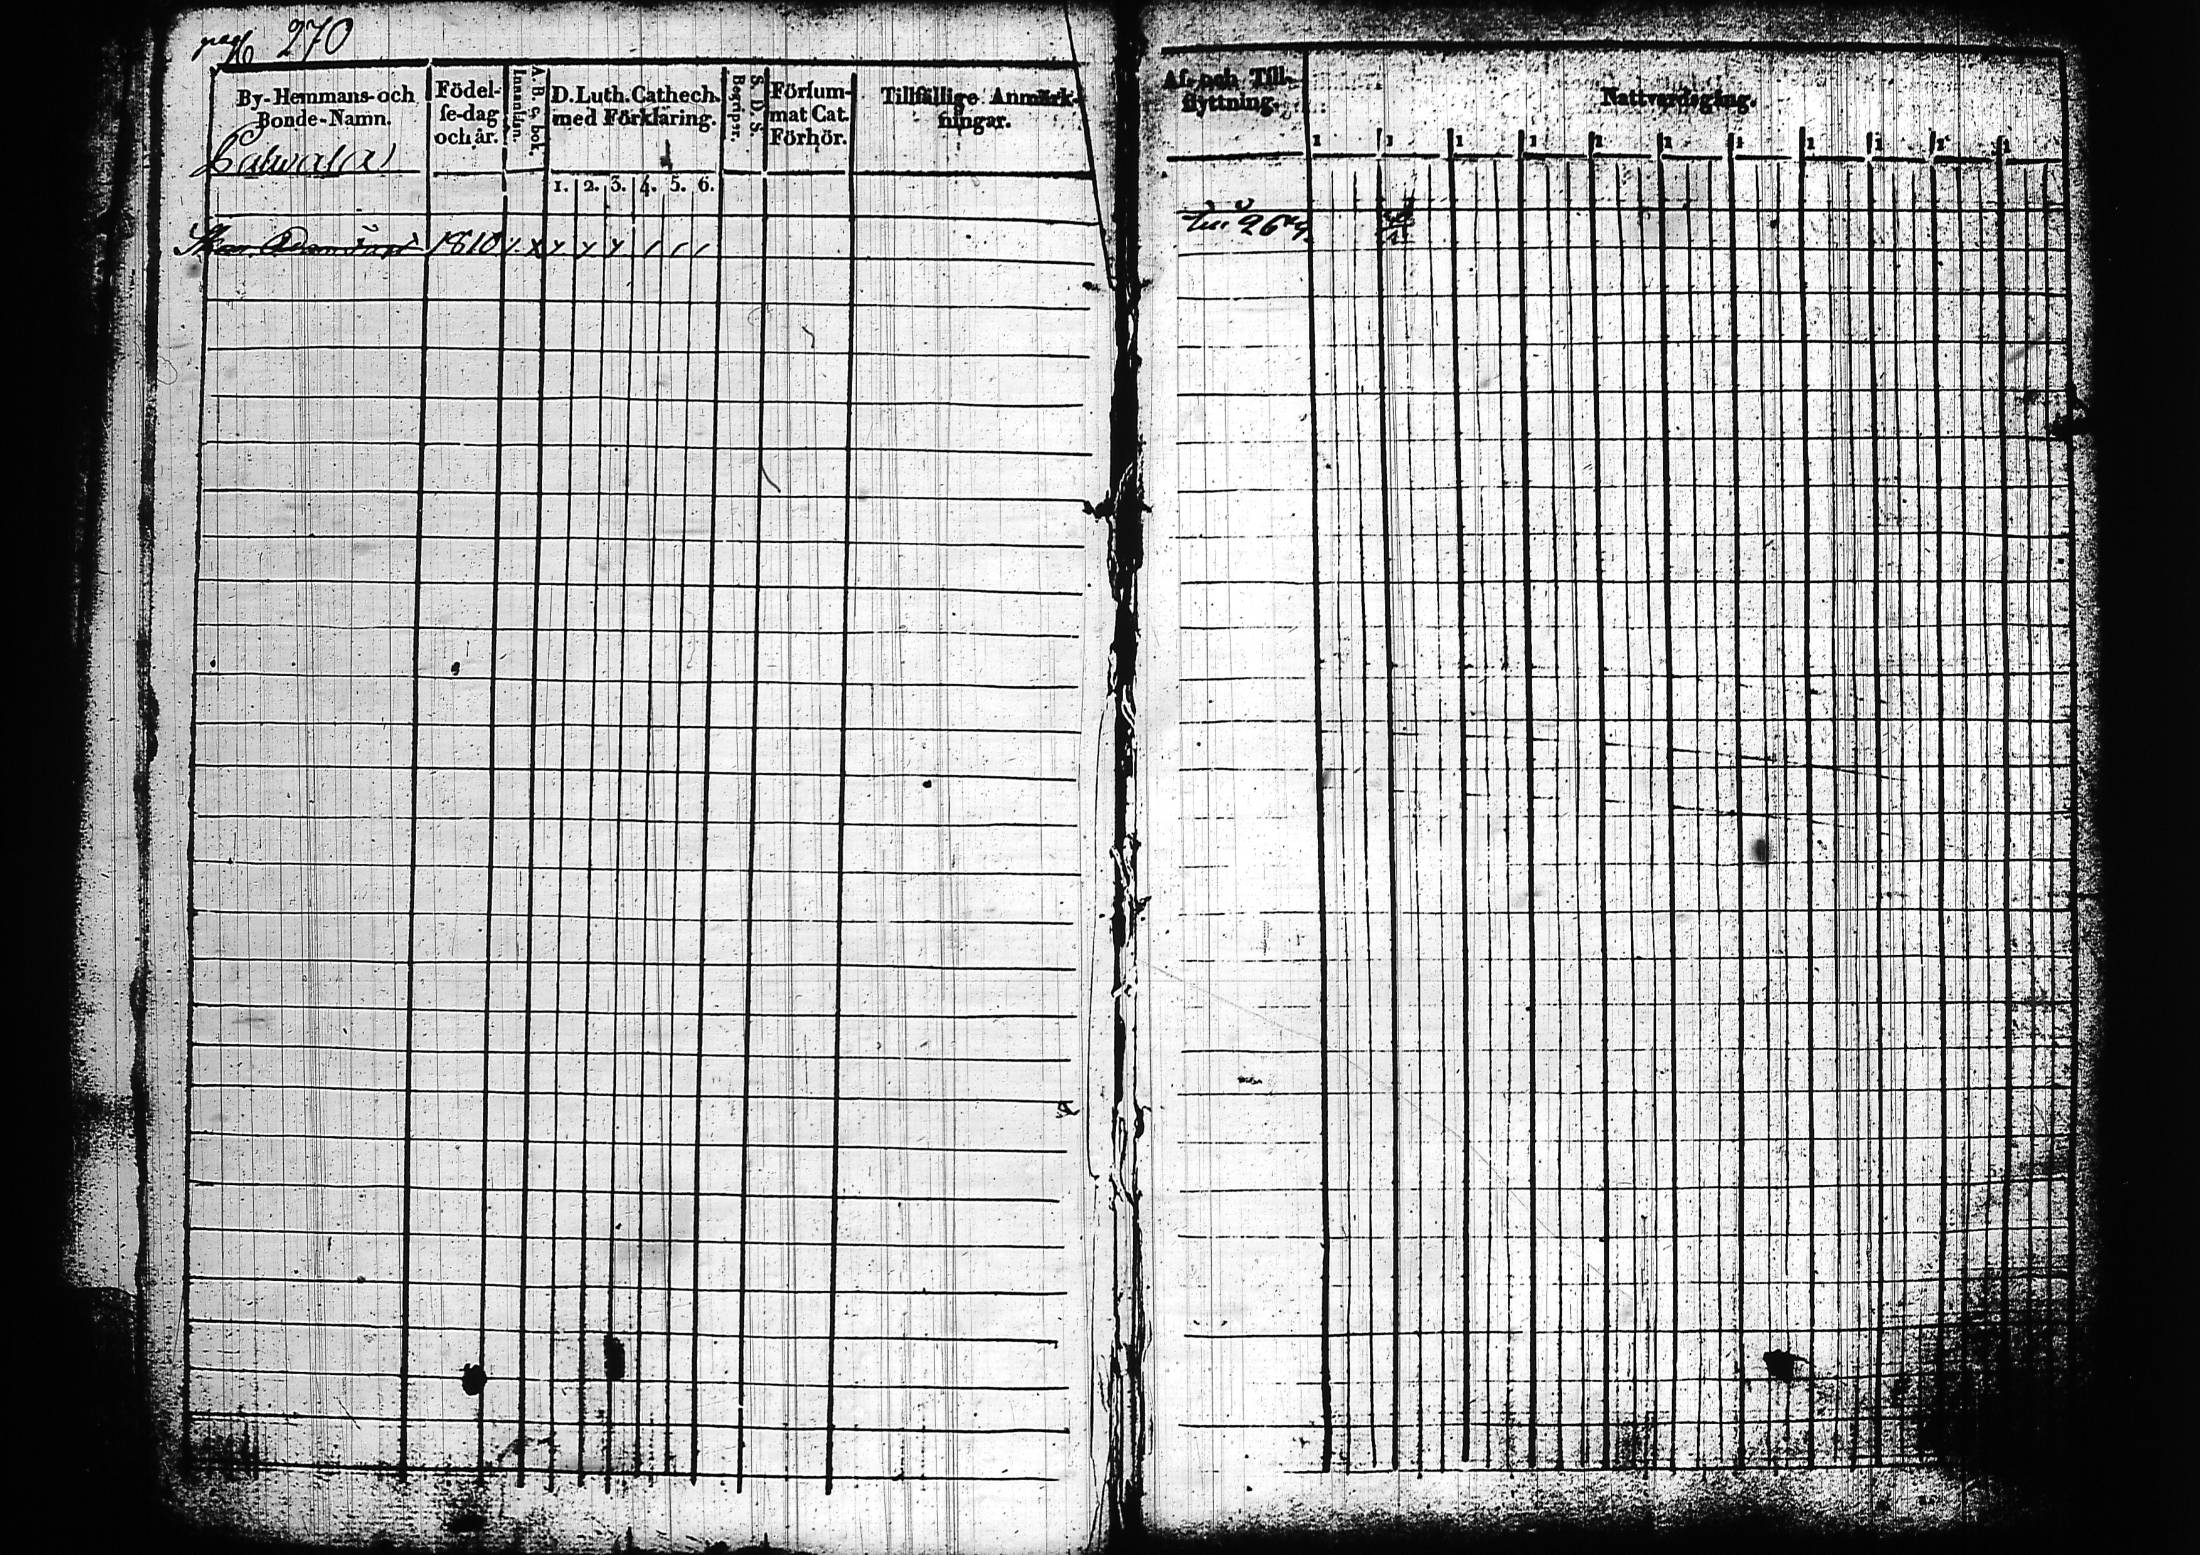 pag 270
By-Hemmans-och
Bonde-Namn.
Födel-
se-dag
och år.
A. B. C. bok.
Innantian.
D. Luth. Cathech.
med Förklaring.
1. 2. 3. 4. 5. 6.
S. D. S.
Begriper.
Försum-
mat Cat.
Förhör.
Tillfällige Anmärk-
ningar.
1810
Af- och Till-
flyttning.
Nattvardsgång.
1 1 1 1 1 1 1 1 1 1 1